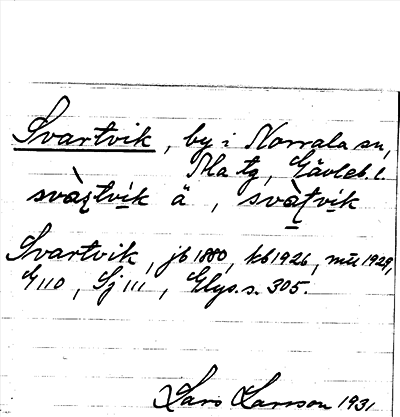 Svartvik, by i Norrala sn,
Ala tg, Gävleb. l.
svàṭvík ä, svàṭvík
Svartvik, jb 1880, kb 1926, mtl 1929,
G 110, Sj 111, Glys. s. 305.
Lars Larsson 1931